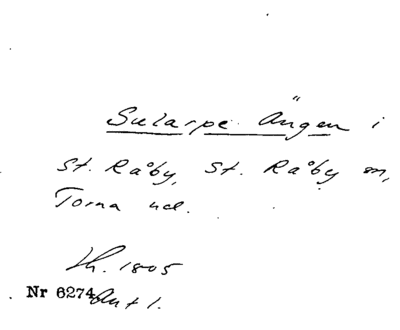 Sularpe Ängen i
St. Råby, St. Råby sn,
Torna hd.
Lh. 1805
Nr 6274 Ant 1.